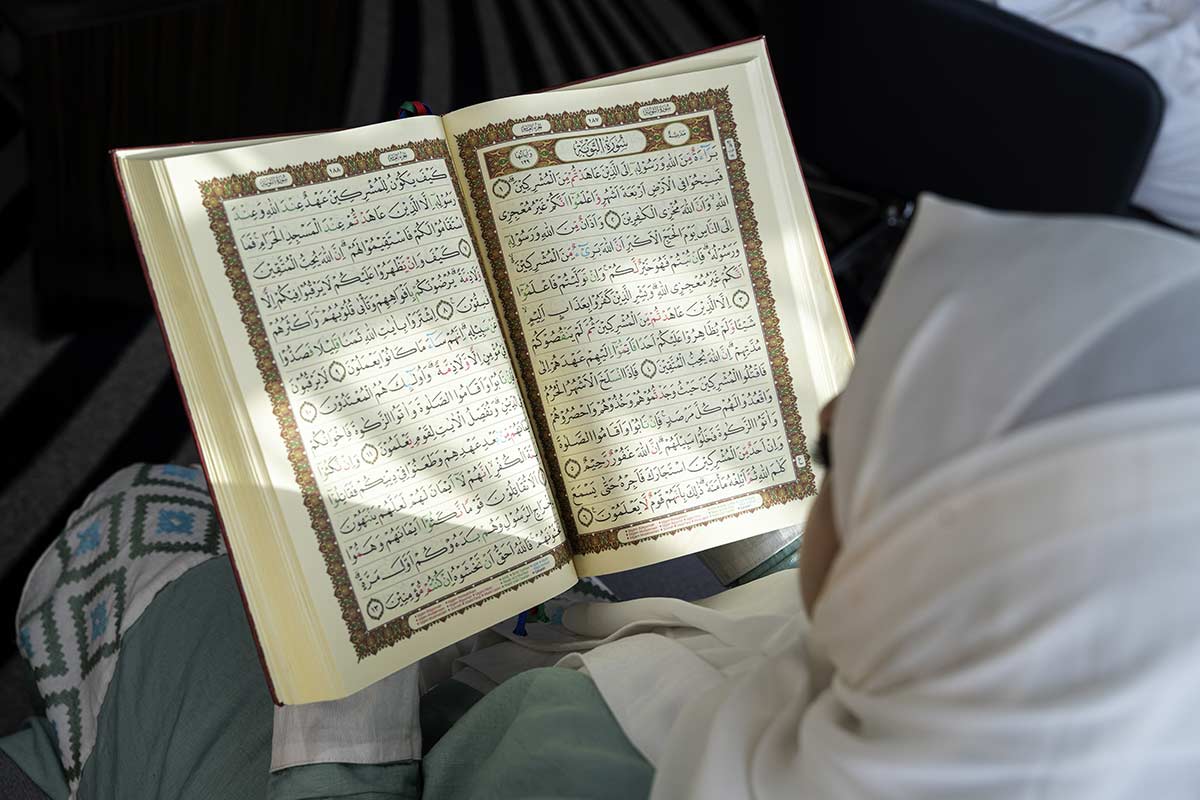 سُورَةُ التَّوْبَةِ ١٨٧ الجزء العاشر
مَدَنِيَّة سُورَةُ التَّوْبَةِ وَآيَاتُهَا ١٢٩
بَرَآءَةٌ مِّنَ اللّٰهِ وَرَسُولِهِ إِلَى الَّذِينَ عَاهَدتُّم مِّنَ الْمُشْرِكِينَ ١
فَسِيحُوا فِي الْأَرْضِ أَرْبَعَةَ أَشْهُرٍ وَاعْلَمُوا أَنَّكُمْ غَيْرُ مُعْجِزِي
اللّٰهِ وَأَنَّ اللّٰهَ مُخْزِي الْكٰفِرِينَ ٢ وَأَذَانٌ مِّنَ اللّٰهِ وَرَسُولِهِ
إِلَى النَّاسِ يَوْمَ الْحَجِّ الْأَكْبَرِ أَنَّ اللّٰهَ بَرِيءٌ مِّنَ الْمُشْرِكِينَ
وَرَسُولُهُ فَإِن تُبْتُمْ فَهُوَ خَيْرٌ لَّكُمْ وَإِن تَوَلَّيْتُمْ فَاعْلَمُوا
أَنَّكُمْ غَيْرُ مُعْجِزِي اللّٰهِ وَبَشِّرِ الَّذِينَ كَفَرُوا بِعَذَابٍ أَلِيمٍ
٣ إِلَّا الَّذِينَ عَاهَدتُّم مِّنَ الْمُشْرِكِينَ ثُمَّ لَمْ يَنقُصُوكُمْ
شَيْئًا وَلَمْ يُظَاهِرُوا عَلَيْكُمْ أَحَدًا فَأَتِمُّوا إِلَيْهِمْ عَهْدَهُمْ إِلَىٰ
مُدَّتِهِمْ إِنَّ اللّٰهَ يُحِبُّ الْمُتَّقِينَ ٤ فَإِذَا انسَلَخَ الْأَشْهُرُ الْحُرُمُ
فَاقْتُلُوا الْمُشْرِكِينَ حَيْثُ وَجَدتُّمُوهُمْ وَخُذُوهُمْ وَاحْصُرُوهُمْ
وَاقْعُدُوا لَهُمْ كُلَّ مَرْصَدٍ فَإِن تَابُوا وَأَقَامُوا الصَّلَوٰةَ
وَآتَوُا الزَّكَوٰةَ فَخَلُّوا سَبِيلَهُمْ إِنَّ اللّٰهَ غَفُورٌ رَّحِيمٌ ٥
وَإِنْ أَحَدٌ مِّنَ الْمُشْرِكِينَ اسْتَجَارَكَ فَأَجِرْهُ حَتَّىٰ يَسْمَعَ
كَلٰمَ اللّٰهِ ثُمَّ أَبْلِغْهُ مَأْمَنَهُ ذٰلِكَ بِأَنَّهُمْ قَوْمٌ لَّا يَعْلَمُونَ ٦
الجزء العاشر ١٨٨ سُورَةُ التَّوْبَةِ
كَيْفَ يَكُونُ لِلْمُشْرِكِينَ عَهْدٌ عِندَ اللّٰهِ وَعِندَ
رَسُولِهِ إِلَّا الَّذِينَ عَاهَدتُّمْ عِندَ الْمَسْجِدِ الْحَرَامِ فَمَا
اسْتَقَامُوا لَكُمْ فَاسْتَقِيمُوا لَهُمْ إِنَّ اللّٰهَ يُحِبُّ الْمُتَّقِينَ
٧ كَيْفَ وَإِن يَظْهَرُوا عَلَيْكُمْ لَا يَرْقُبُوا فِيكُمْ إِلًّا
وَلَا ذِمَّةً يُرْضُونَكُم بِأَفْوَاهِهِمْ وَتَأْبَىٰ قُلُوبُهُمْ وَأَكْثَرُهُمْ
فٰسِقُونَ ٨ اشْتَرَوْا بِآيٰتِ اللّٰهِ ثَمَنًا قَلِيلًا فَصَدُّوا
سَبِيلِهِ إِنَّهُمْ سَآءَ مَا كَانُوا يَعْمَلُونَ ٩ لَا يَرْقُبُونَ
مُؤْمِنٍ إِلًّا وَلَا ذِمَّةً وَأُولٰئِكَ هُمُ الْمُعْتَدُونَ ١٠
وَأَقَامُوا الصَّلَوٰةَ وَآتَوُا الزَّكَوٰةَ فَإِخْوَانُكُمْ
الدِّينِ وَنُفَصِّلُ الْآيٰتِ لِقَوْمٍ يَعْلَمُونَ ١١ وَإِن نَّكَثُوا
مِّن بَعْدِ عَهْدِهِمْ وَطَعَنُوا فِي دِينِكُمْ فَقَاتِلُوا
الْكُفْرِ إِنَّهُمْ لَا أَيْمَانَ لَهُمْ لَعَلَّهُمْ يَنتَهُونَ
أَلَا تُقَاتِلُونَ قَوْمًا نَّكَثُوا أَيْمَانَهُمْ وَهَمُّوا
بِإِخْرَاجِ الرَّسُولِ وَهُم بَدَءُوكُمْ أَوَّلَ مَرَّةٍ
فَاللّٰهُ أَحَقُّ أَن تَخْشَوْهُ إِن كُنتُم مُّؤْمِنِينَ ١٣